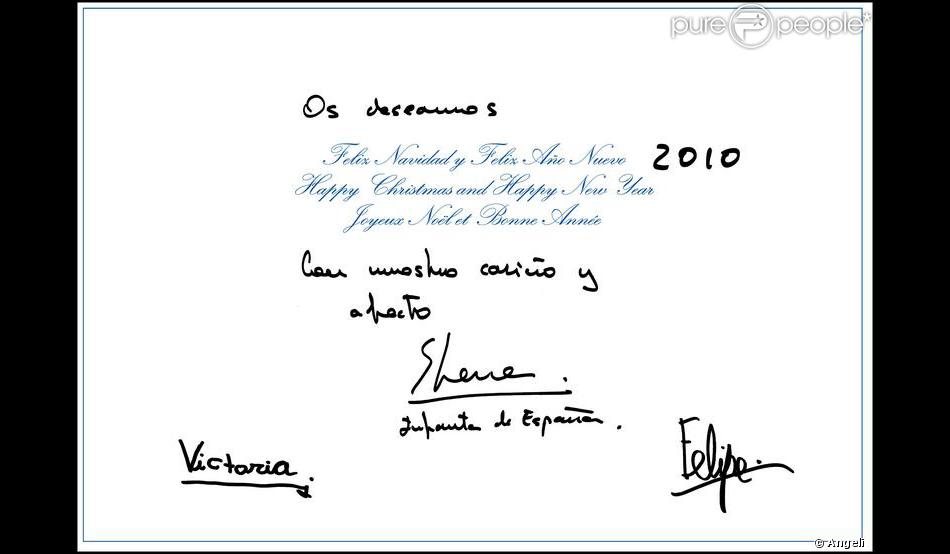 purepeople
Os deseamos
Feliz Navidad y Feliz Año Nuevo 2010
Happy Christmas and Happy New Year
Joyeux Noël et Bonne Année
Con nuestro cariño y
afecto
Elena.
Infanta de España.
Victoria.
Felipe.
© Angeli